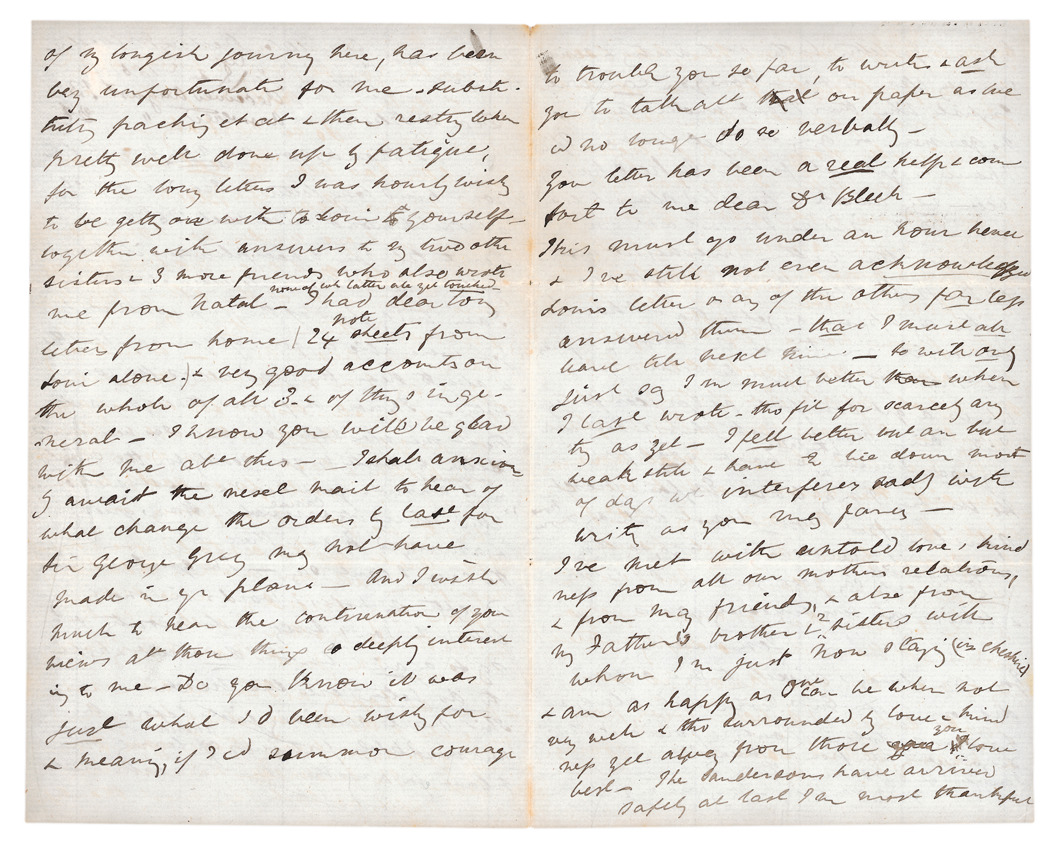 of my longish journey here, has been
very unfortunate for me - substi-
tuting packing et cet & then resting when
pretty well done up by fatigue,
for the long letters I was hourly wishing
to be getting on with to & yourself -
together with answers to my two other
sisters & 3 more friends who also wrote
none of wh latter are yet touched
me from Natal - I had dear long
note
letters from home (24 sheets from
alone.) & very good accounts on
the whole of all 3 - & of things in ge-
neral - I know you will be glad
with me abt this - I shall anxious
ly await the next mail to hear of
what change the orders by last for
Sir George Grey may not have
made in yr plans - And I wish
much to hear the continuation of your
views abt those things so deeply interest
ing to me - Do you know it was
just what I'd been wishing for
& meaning, if I cd summon courage
to trouble you so far, to write & ask
you to talk all that on paper as we
cd no longer do so verbally -
Your letter has been a real help & com
fort to me dear Dr Bleek -
This must go under an hour hence
& I've still not even acknowledged
letter or any of the others far less
answered them - that I must all
leave till next time - & with only
just say I'm much better than when
I last wrote - tho fit for scarcely any
thing as yet - I feel better but am but
weak still & have to lie down most
of day wh interferes sadly with
writing as you may fancy -
I've met with untold love & kind
ness from all our mothers relations,
& from my friends, & also from
my Father's brother & sisters with
whom I'm just now staying (in Cheshire)
& am as happy as one can be when not
very well & tho surrounded by love & kind
ness yet away from those you love
best - The Sandersons have arrived
safely at last I'm most thankful